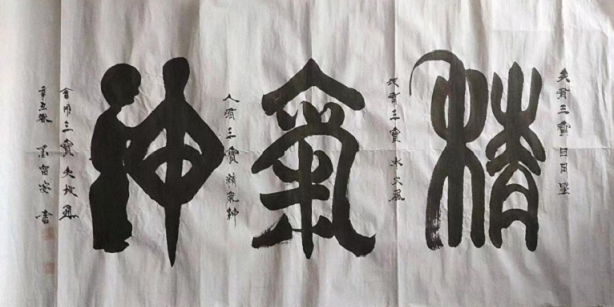 天有三寶日月星
精
地有三寶水火風
氣
人有三寶精氣神
神
會用三寶天地通
辛丑秋 書